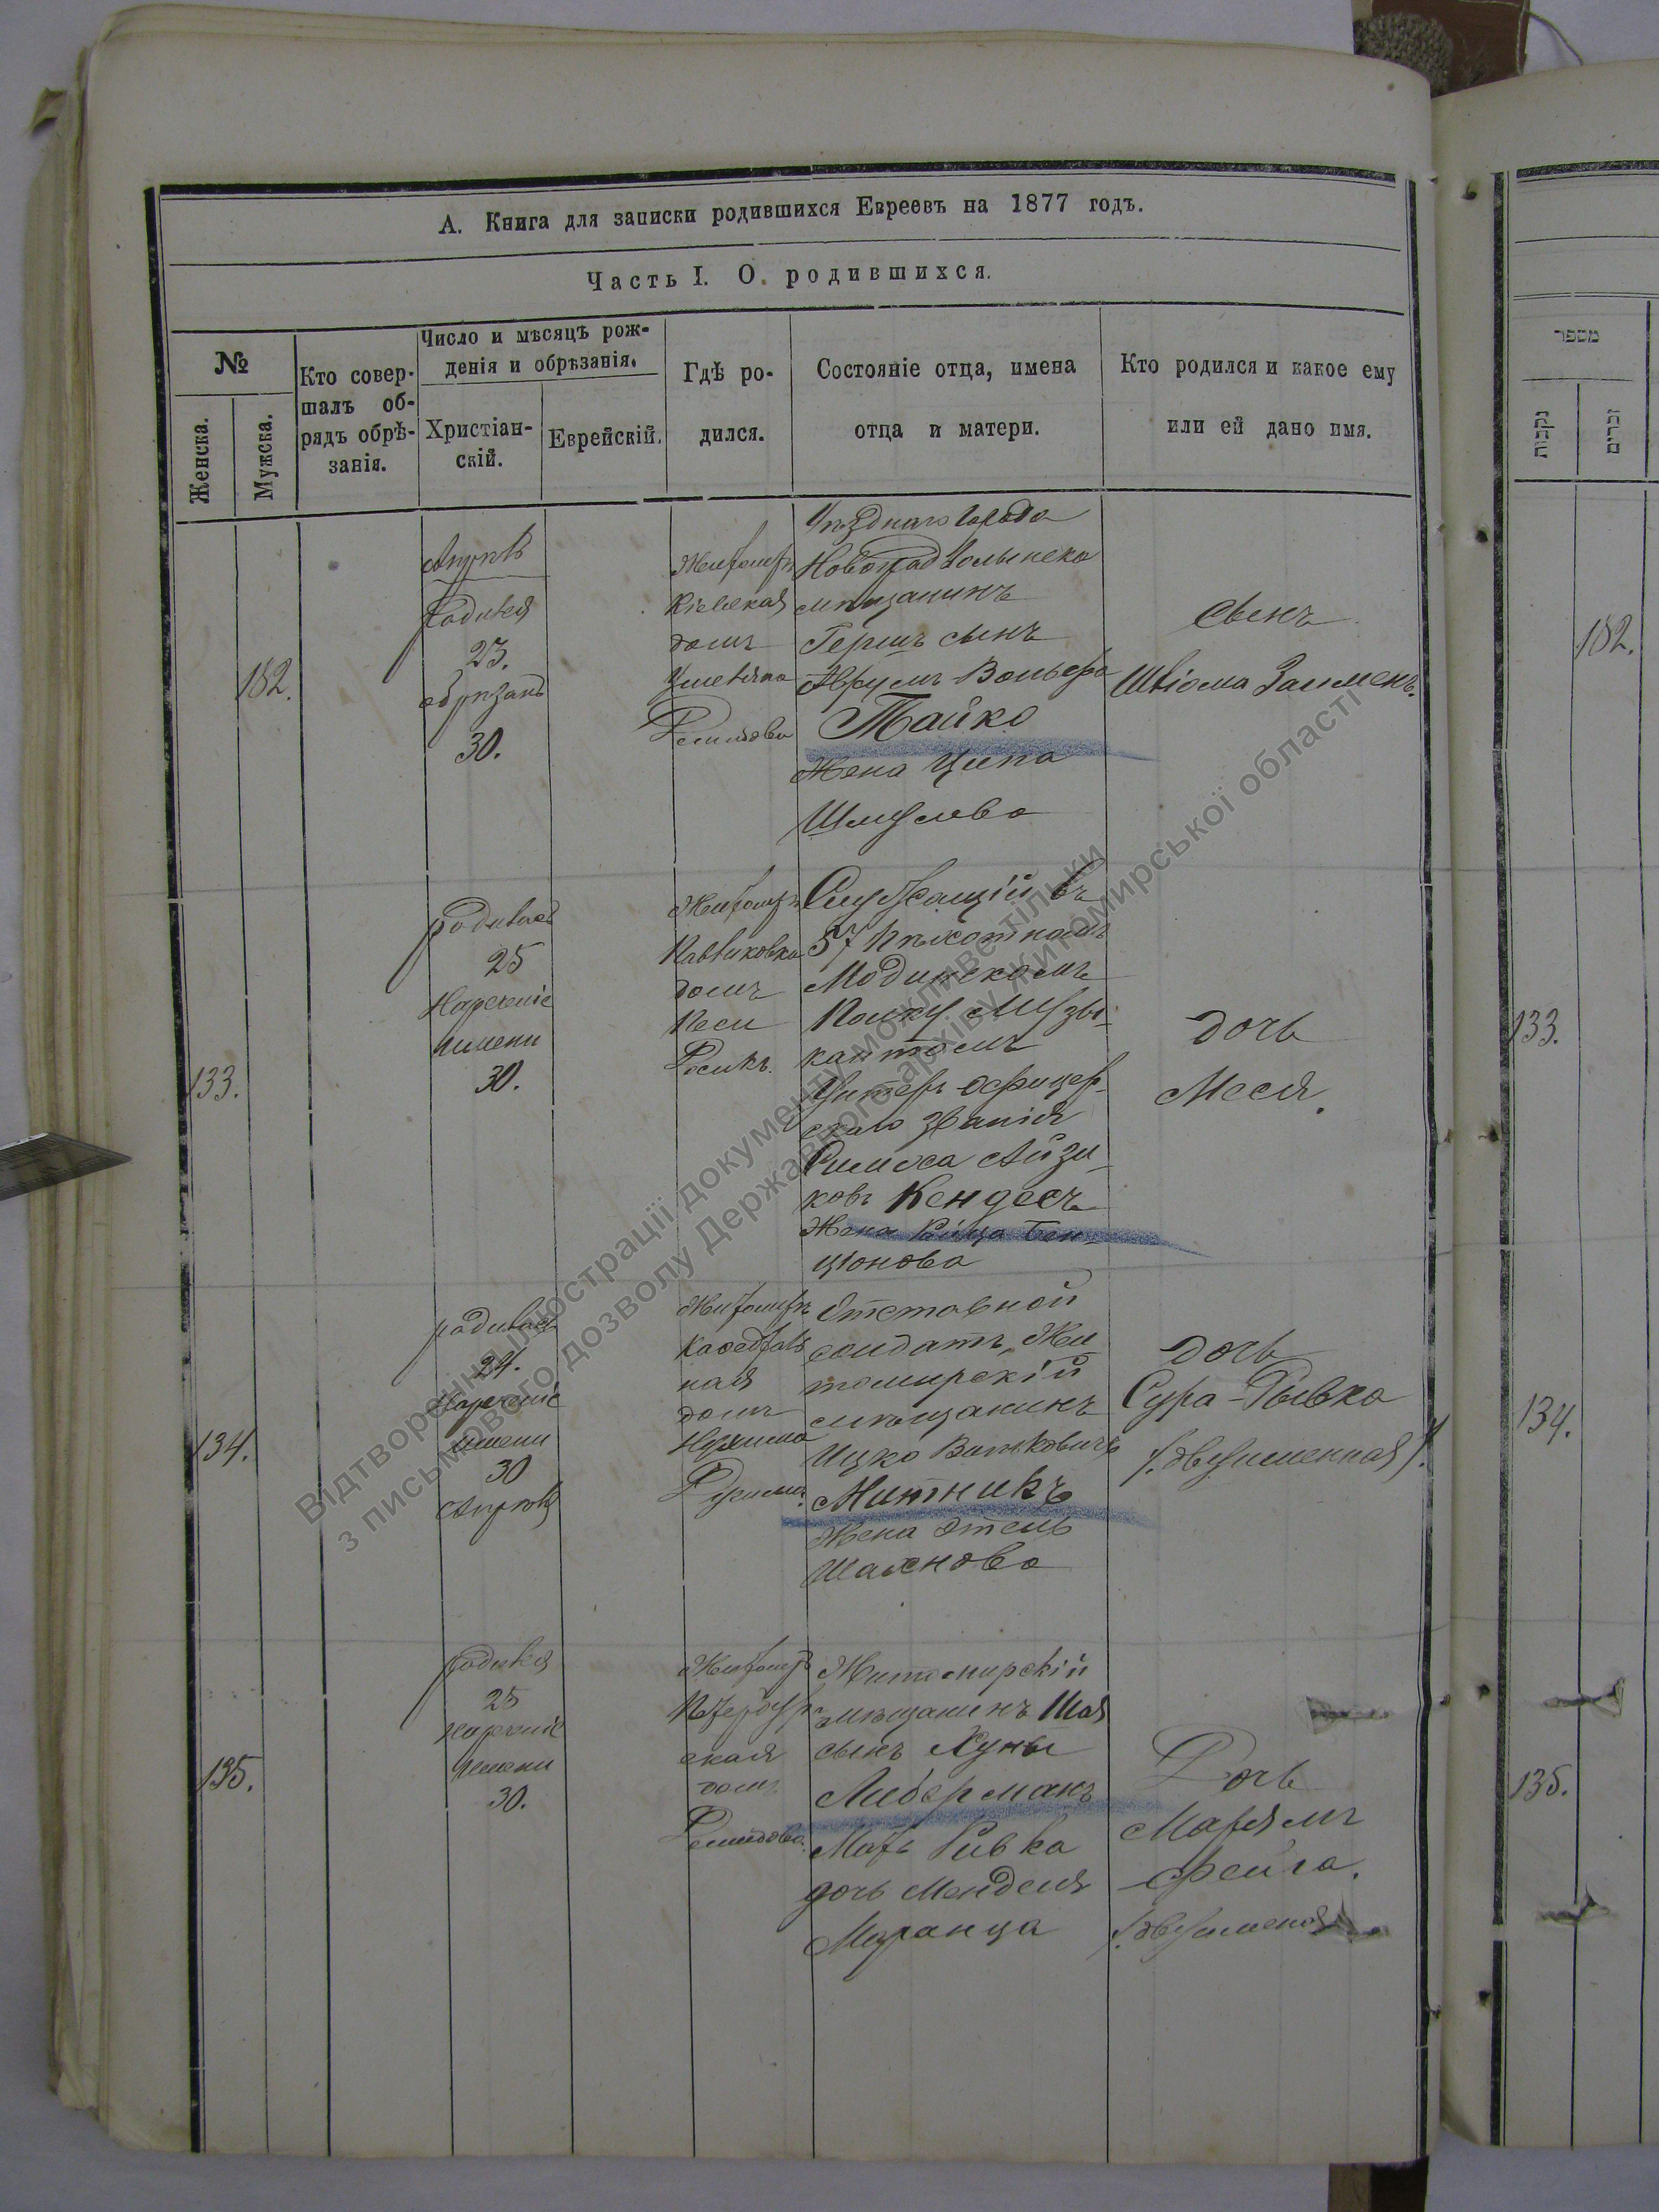 А. Книга для записки родившихся Евреевъ на 1877 годъ.
Часть I. О родившихся.
№
Женска.
Мужска.
Кто совер-
шалъ об-
рядъ обрѣ-
занія.
Число и мѣсяцъ рож-
денія и обрѣзанія.
Христіан-
скій.
Еврейскій.
Гдѣ ро-
дился.
Состояніе отца, имена
отца и матери.
Кто родился и какое ему
или ей дано имя.
מספר
נקבות
זכרים
182.
Родился
23.
обрѣзанъ
30.
Житомиръ
Кіевская
домъ
города
Новоград Волынска
мѣщанинъ
Гершъ сынъ
Аврумъ Вольфа
Тайко
Жена Ципа
Шмулева
Сынъ
182.
133.
родилась
25
Нареченіе
имени
30.
Житомиръ
домъ
Служащій въ
57 Пѣхотномъ
Модлинскомъ
Полку Музы-
кантомъ
Унтеръ-офицер-
скаго званія
Айзи-
ковъ Кендесъ
Жена Бен-
ціонова
дочь
Меся.
133.
134.
родилась
24.
Нареченіе
имени
30
Житомиръ
Каѳедраль
ная
домъ
Отставной
солдатъ, Жи
томирскій
мѣщанинъ
Ицко
Митникъ
Жена Этель
Шахнова
дочь
Сура-Рывка
/. двуименная /.
134.
135.
25
нареченіе
имени
30.
Житомиръ
ская
домъ
Житомирскій
мѣщанинъ Шая
сынъ Хуны
Либерманъ
Мать Ривка
дочь Менделя
Маранца
Дочь
Марямъ
Фейга.
135.
Відтворення ілюстрації документу можливе тільки
з письмового дозволу Державного архіву Житомирської області